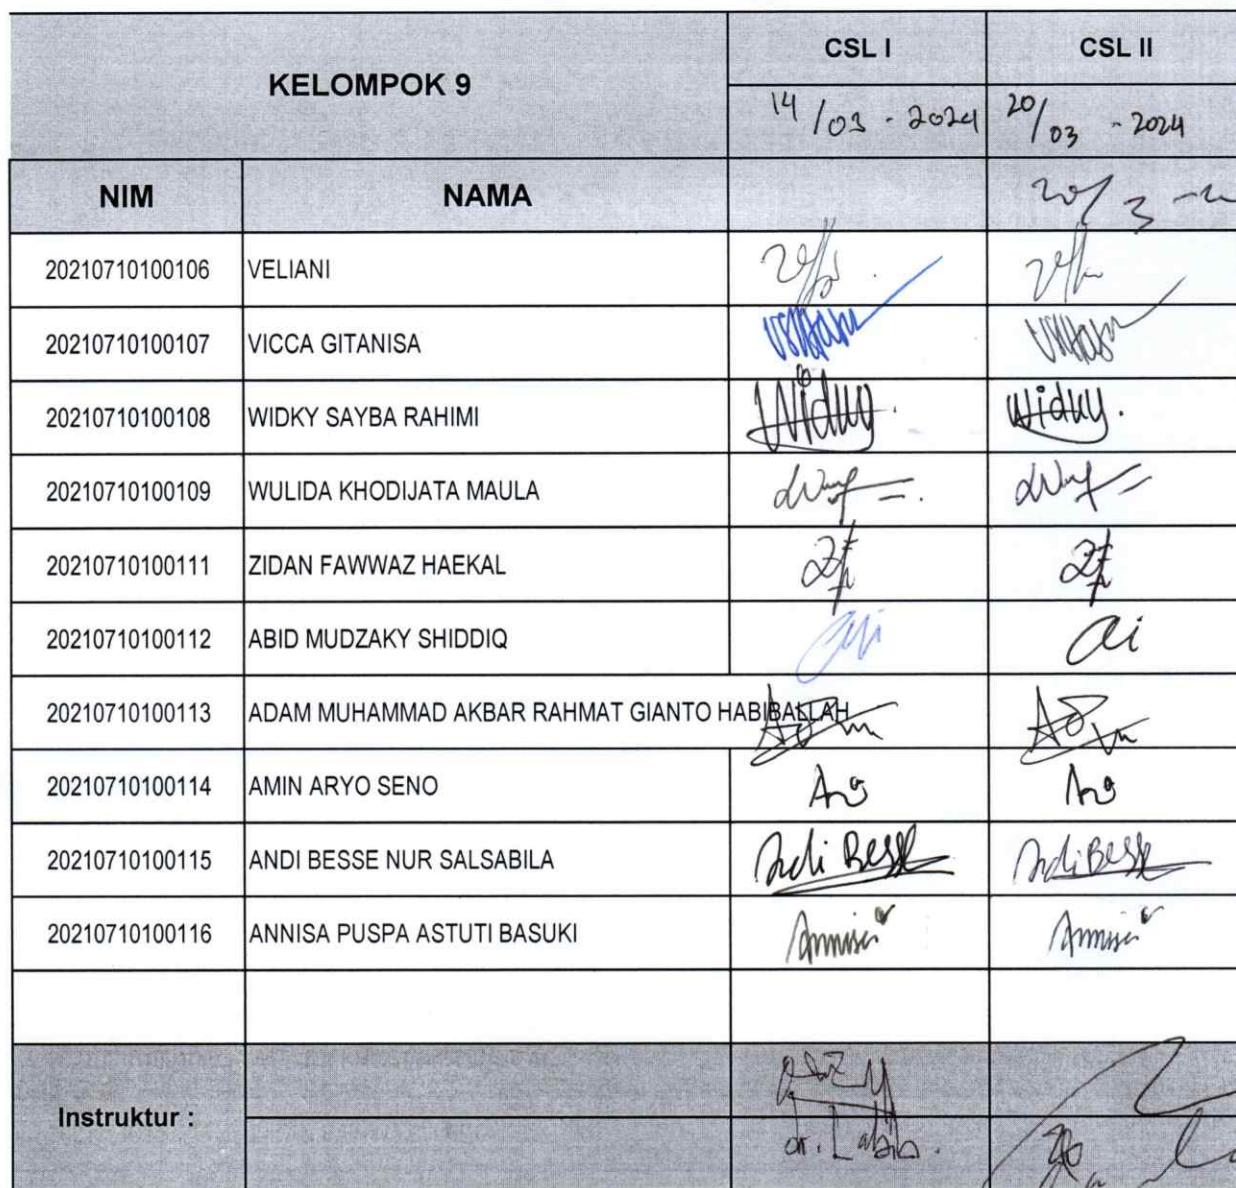 KELOMPOK 9 CSL I CSL II
14/03 - 2024 20/03 - 2024
NIM NAMA
20/3 -
20210710100106 VELIANI
20210710100107 VICCA GITANISA
20210710100108 WIDKY SAYBA RAHIMI Widky. Widky.
20210710100109 WULIDA KHODIJATA MAULA
20210710100111 ZIDAN FAWWAZ HAEKAL
20210710100112 ABID MUDZAKY SHIDDIQ
20210710100113 ADAM MUHAMMAD AKBAR RAHMAT GIANTO HABIBALLAH
20210710100114 AMIN ARYO SENO
20210710100115 ANDI BESSE NUR SALSABILA Andi Besse Andi Besse
20210710100116 ANNISA PUSPA ASTUTI BASUKI Annisa Annisa
Instruktur :
dr.